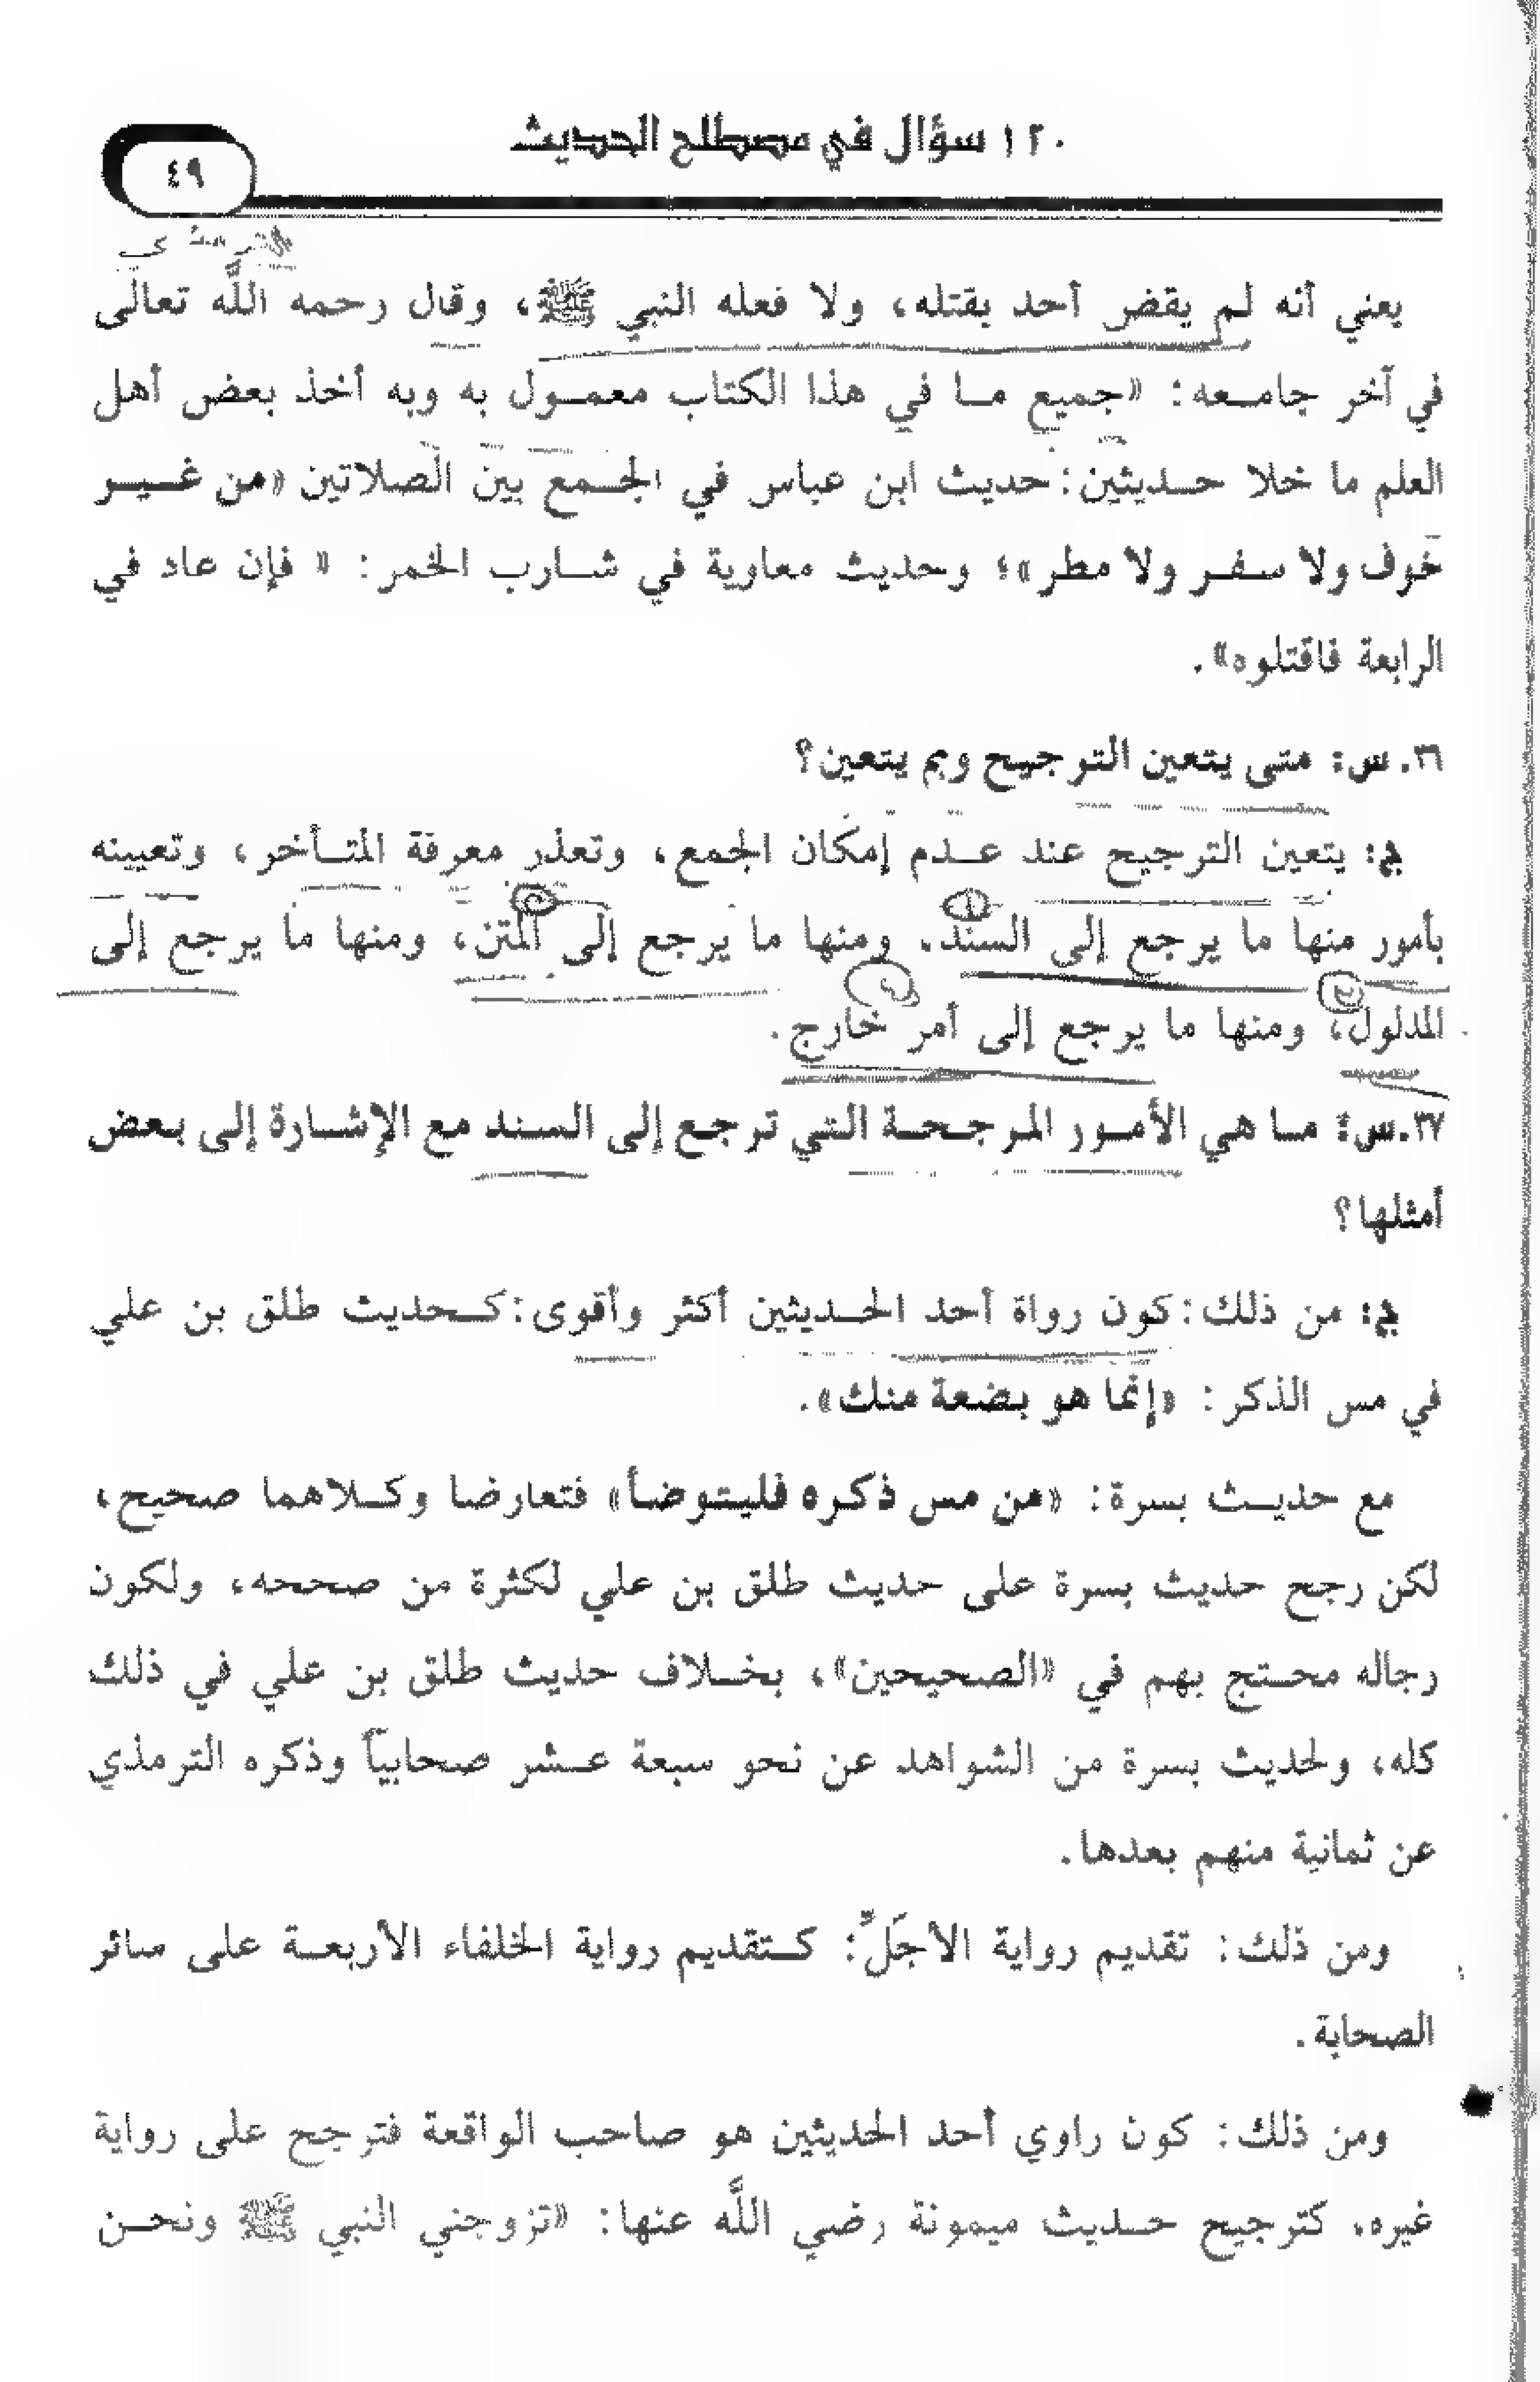 ١٢٠ سؤال في مصطلح الحديث
٤٩
يعني أنه لم يقض أحد بقتله، ولا فعله النبي ﷺ، وقال رحمه اللَّه تعالى
في آخر جامعه: «جميع ما في هذا الكتاب معمول به وبه أخذ بعض أهل
العلم ما خلا حديثين: حديث ابن عباس في الجمع بين الصلاتين «من غير
خوف ولا سفر ولا مطر»؛ وحديث معاوية في شارب الخمر: « فإن عاد في
الرابعة فاقتلوه».
٣٦. س: متى يتعين الترجيح وبم يتعين؟
ج: يتعين الترجيح عند عدم إمكان الجمع، وتعذر معرفة المتأخر، وتعيينه
بأمور منها ما يرجع إلى السند. ومنها ما يرجع إلى المتن، ومنها ما يرجع إلى
المدلول، ومنها ما يرجع إلى أمر خارج.
٣٧.س: ما هي الأمور المرجحة التي ترجع إلى السند مع الإشارة إلى بعض
أمثلها؟
ج: من ذلك: كون رواة أحد الحديثين أكثر وأقوى: كحديث طلق بن علي
في مس الذكر: «إنما هو بضعة منك».
مع حديث بسرة: «من مس ذكره فليتوضأ» فتعارضا وكلاهما صحيح،
لكن رجح حديث بسرة على حديث طلق بن علي لكثرة من صححه، ولكون
رجاله محتج بهم في «الصحيحين»، بخلاف حديث طلق بن علي في ذلك
كله، ولحديث بسرة من الشواهد عن نحو سبعة عشر صحابياً وذكره الترمذي
عن ثمانية منهم بعدها.
ومن ذلك: تقديم رواية الأجَلِّ: كتقديم رواية الخلفاء الأربعة على سائر
الصحابة.
ومن ذلك: كون راوي أحد الحديثين هو صاحب الواقعة فترجح على رواية
غيره. كترجيح حديث ميمونة رضي اللَّه عنها: «تزوجني النبي ﷺ ونحن